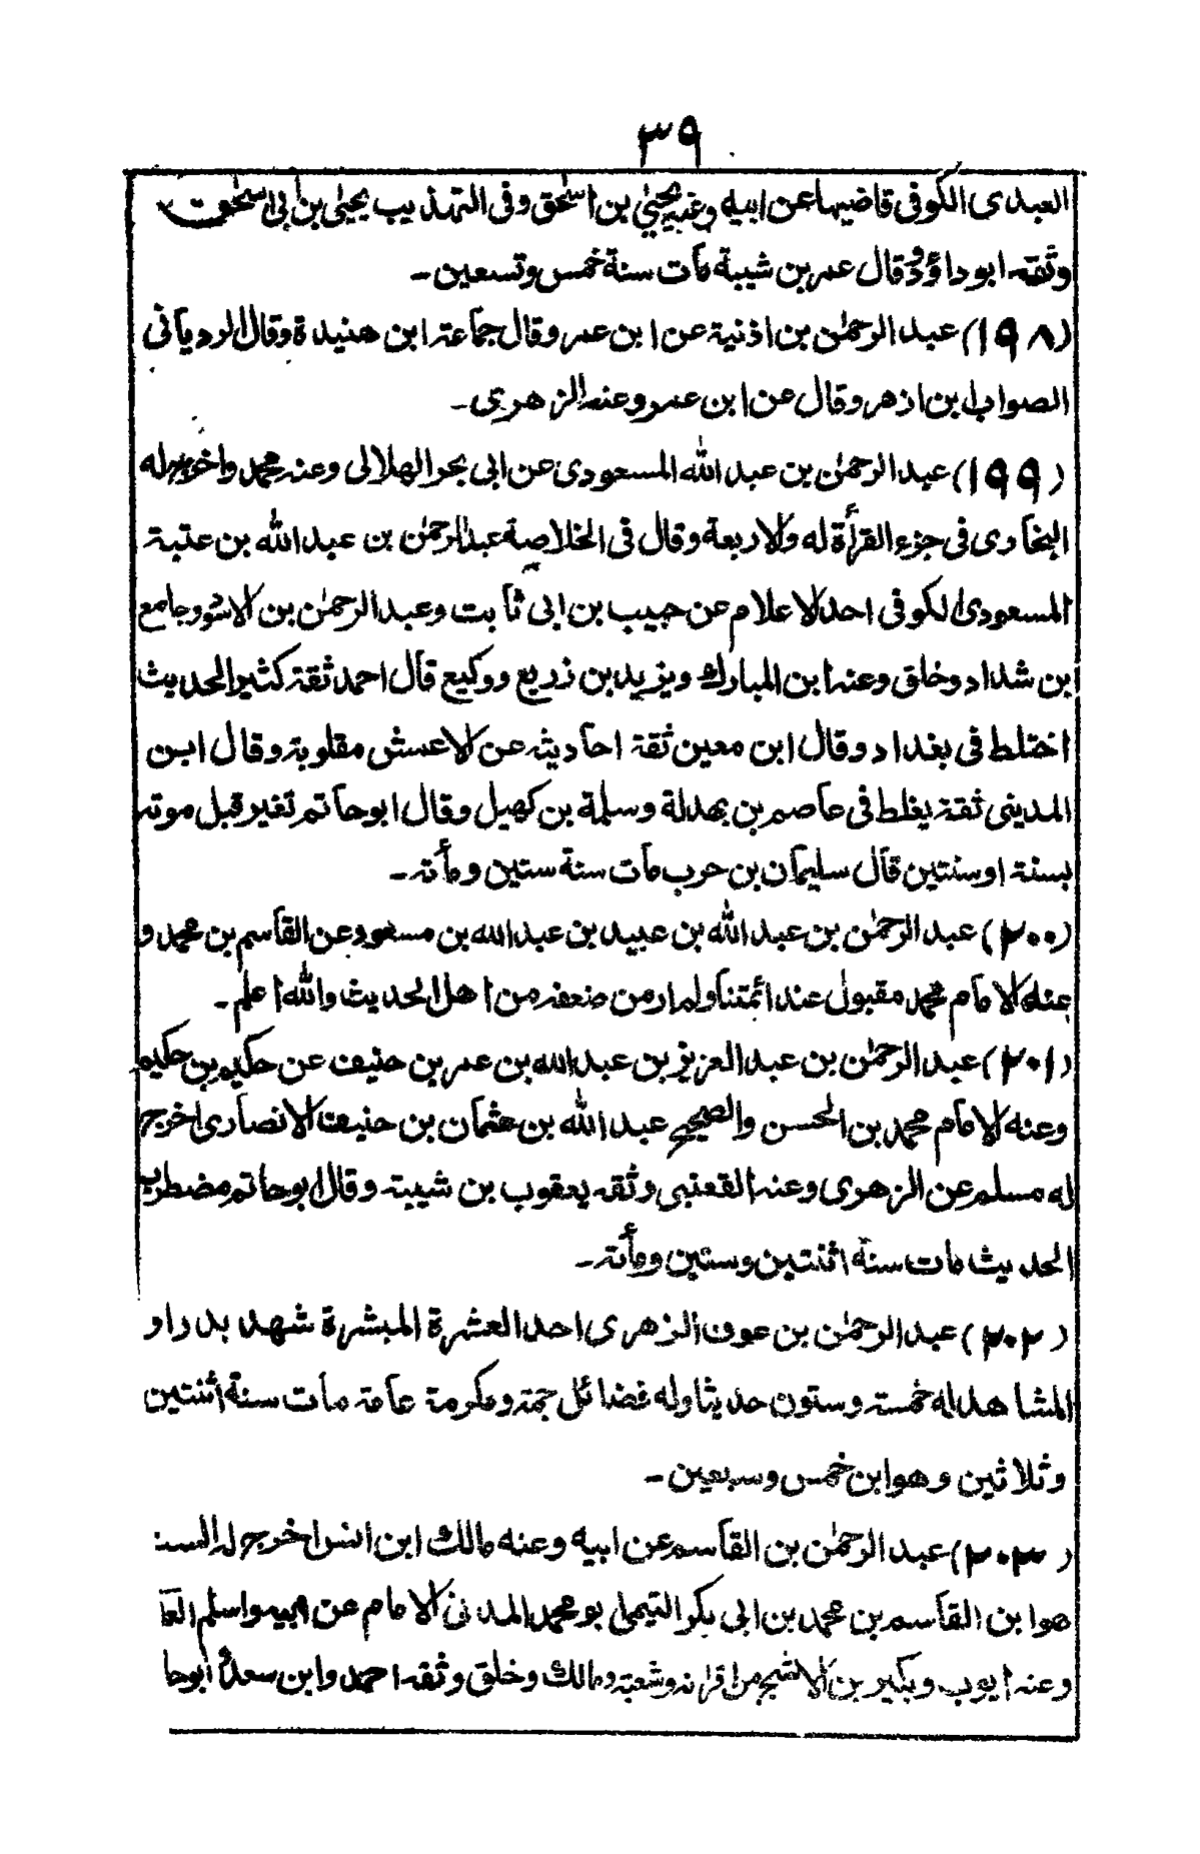 ٣٩
العبدى الكوفى قاضيها عن ابيه وعنه يحيىٰ بن اسحٰق وفى التهذيب يحيىٰ بن ابى اسحٰق
وثقه ابو داؤد وقال عمر بن شيبة مات سنة خمس وتسعين ـ
(١٩٨) عبد الرحمٰن بن اذنية عن ابن عمر وقال جماعته ابن هنيدة وقال الرديانى
الصواب ابن ازهر وقال عن ابن عمر وعنه الزهرى ـ
(١٩٩) عبد الرحمٰن بن عبد الله المسعودى عن ابى بحر الهلالى وعنه محمد واخرج له
البخارى فى جزء القرأة له والاربعة وقال فى الخلاصة عبد الرحمٰن بن عبد الله بن عتبة
المسعودى الكوفى احد الاعلام عن حبيب بن ابى ثابت وعبد الرحمٰن بن الاسود وجامع
بن شداد وخلق وعنه ابن المبارك ويزيد بن زريع ووكيع قال احمد ثقة كثير الحديث
اختلط فى بغداد وقال ابن معين ثقة احاديثه عن الاعمش مقلوبة وقال ابن
المدينى ثقة يغلط فى عاصم بن بهدلة وسلمة بن كهيل وقال ابو حاتم تغير قبل موته
بسنة او سنتين قال سليمان بن حرب مات سنة ستين ومأته ـ
(٢٠٠) عبد الرحمٰن بن عبد الله بن عبيد بن عبد الله بن مسعود عن القاسم بن محمد و
عنه الامام محمد مقبول عند ائمتنا ولم ار من ضعفه من اهل الحديث والله اعلم ـ
(٢٠١) عبد الرحمٰن بن عبد العزيز بن عبد الله بن عمر بن حنيف عن حكيم بن حكيم
وعنه الامام محمد بن الحسن والصحيح عبد الله بن عثمان بن حنيف الانصارى اخرج
له مسلم عن الزهرى وعنه القعنبى وثقه يعقوب بن شيبة وقال ابو حاتم مضطرب
الحديث مات سنة اثنتين وستين ومأته ـ
(٢٠٢) عبد الرحمٰن بن عوف الزهرى احد العشرة المبشرة شهد بدرا و
المشاهد له خمسة وستون حديثا وله فضائل جمة ومكرمة عامة مات سنة اثنتين
وثلاثين وهو ابن خمس وسبعين ـ
(٢٠٣) عبد الرحمٰن بن القاسم عن ابيه وعنه مالك ابن انس اخرج له الستة
هو ابن القاسم بن محمد بن ابى بكر التيمى ابو محمد المدنى الامام عن ابيه واسلم
وعنه ايوب وبكير بن الاشج من اقرانه وشعبة ومالك وخلق وثقه احمد وابن سعد وابو حا